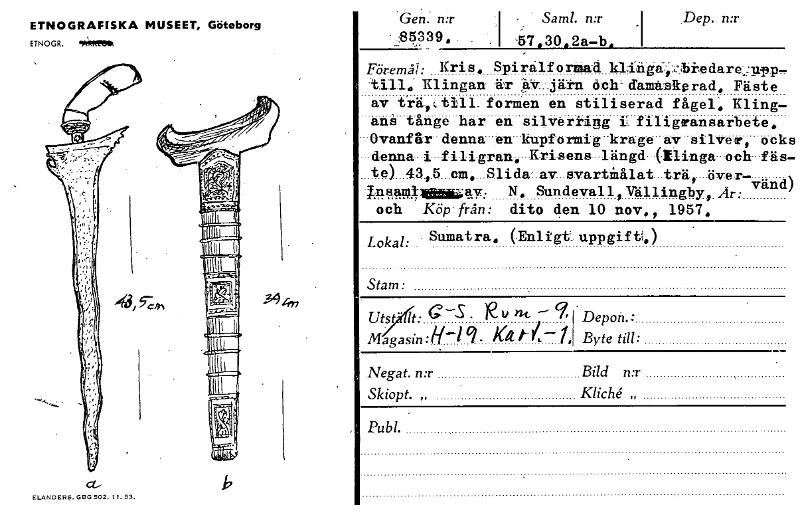 ETNOGRAFISKA MUSEET, Göteborg
ETNOGR.
43,5 cm
34 cm
a
b
ELANDERS. GBG 502. 11. 53.
Gen. n:r
85339.
Saml. n:r
57.30.2a-b.
Dep. n:r
Föremål: Kris. Spiralformad klinga, bredare upp-
till. Klingan är av järn och damaskerad. Fäste
av trä, till formen en stiliserad fågel. Kling-
ans tånge har en silverring i filigransarbete.
Ovanför denna en kupformig krage av silver, ocks
denna i filigran. Krisens längd (Klinga och fäs-
te) 43,5 cm. Slida av svartmålat trä, över-
vänd)
Insaml av: N. Sundevall, Vällingby, År:
och Köp från: dito den 10 nov., 1957.
Lokal: Sumatra. (Enligt uppgift.)
Stam:
Utställt: G-S. Rum - 9. Depon.:
Magasin: H-19. Kart.-1. Byte till:
Negat. n:r Bild n:r
Skiopt. „ Kliché „
Publ.